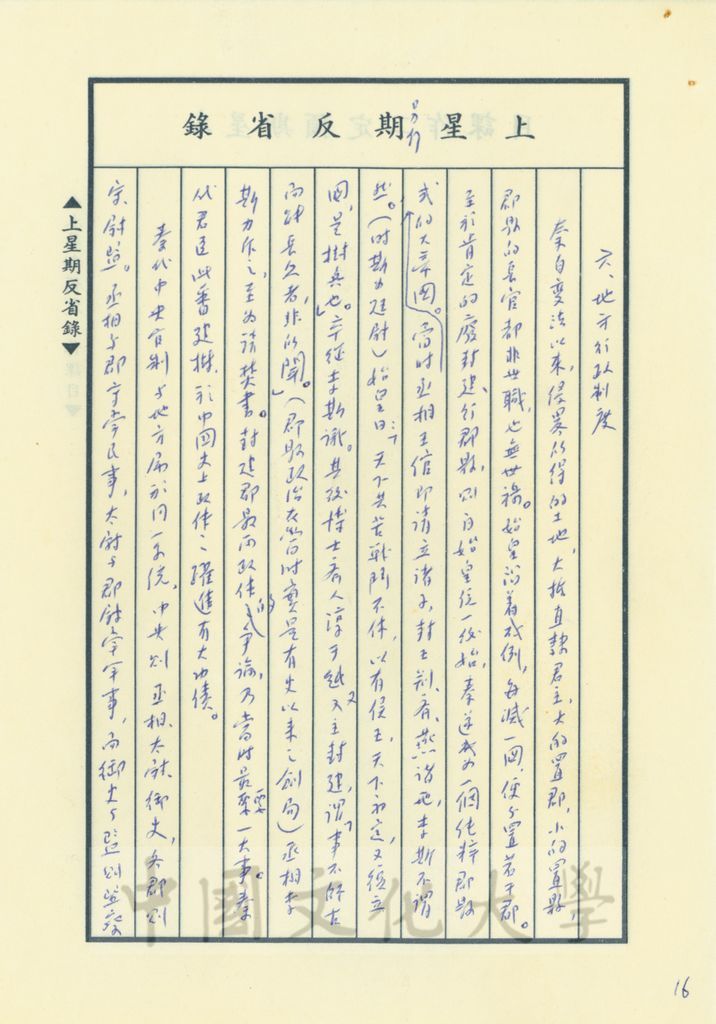 上星期反省錄
六、地方行政制度
秦自變法以來，侵略所得的土地，大抵直隸君主，大的置郡，小的置縣
郡縣的長官都非世職，也無世祿。始皇沿着成例，每滅一國，便分置若干郡。
至於肯定的廢封建、行郡縣，則自始皇統一後始，秦遂成為一個純粹郡縣
式的大帝國。當時丞相王綰即請立諸子，封王荊、齊、燕諸地，李斯不謂
然。（時斯為廷尉）始皇曰：「天下共苦戰鬥不休，以有侯王，天下初定，又復立
國，是樹兵也。」卒從李斯議。其後博士齊人淳于越又主封建，謂「事不師古
而能長久者，非所聞。」（郡縣政治在當時實是有史以來之創局）丞相李
斯力斥之，至為請焚書。封建郡縣兩政體的爭論，乃當時最要一大事。秦
代君臣此番建樹，於中國史上政體之躍進有大功績。
秦代中央官制與地方屬於同一系統，中央則丞相、太尉、御史，各郡則
守、尉、監。丞相與郡守掌民事，太尉與郡尉掌軍事，而御史與監則監察
▲上星期反省錄▼
中國文化大學
16